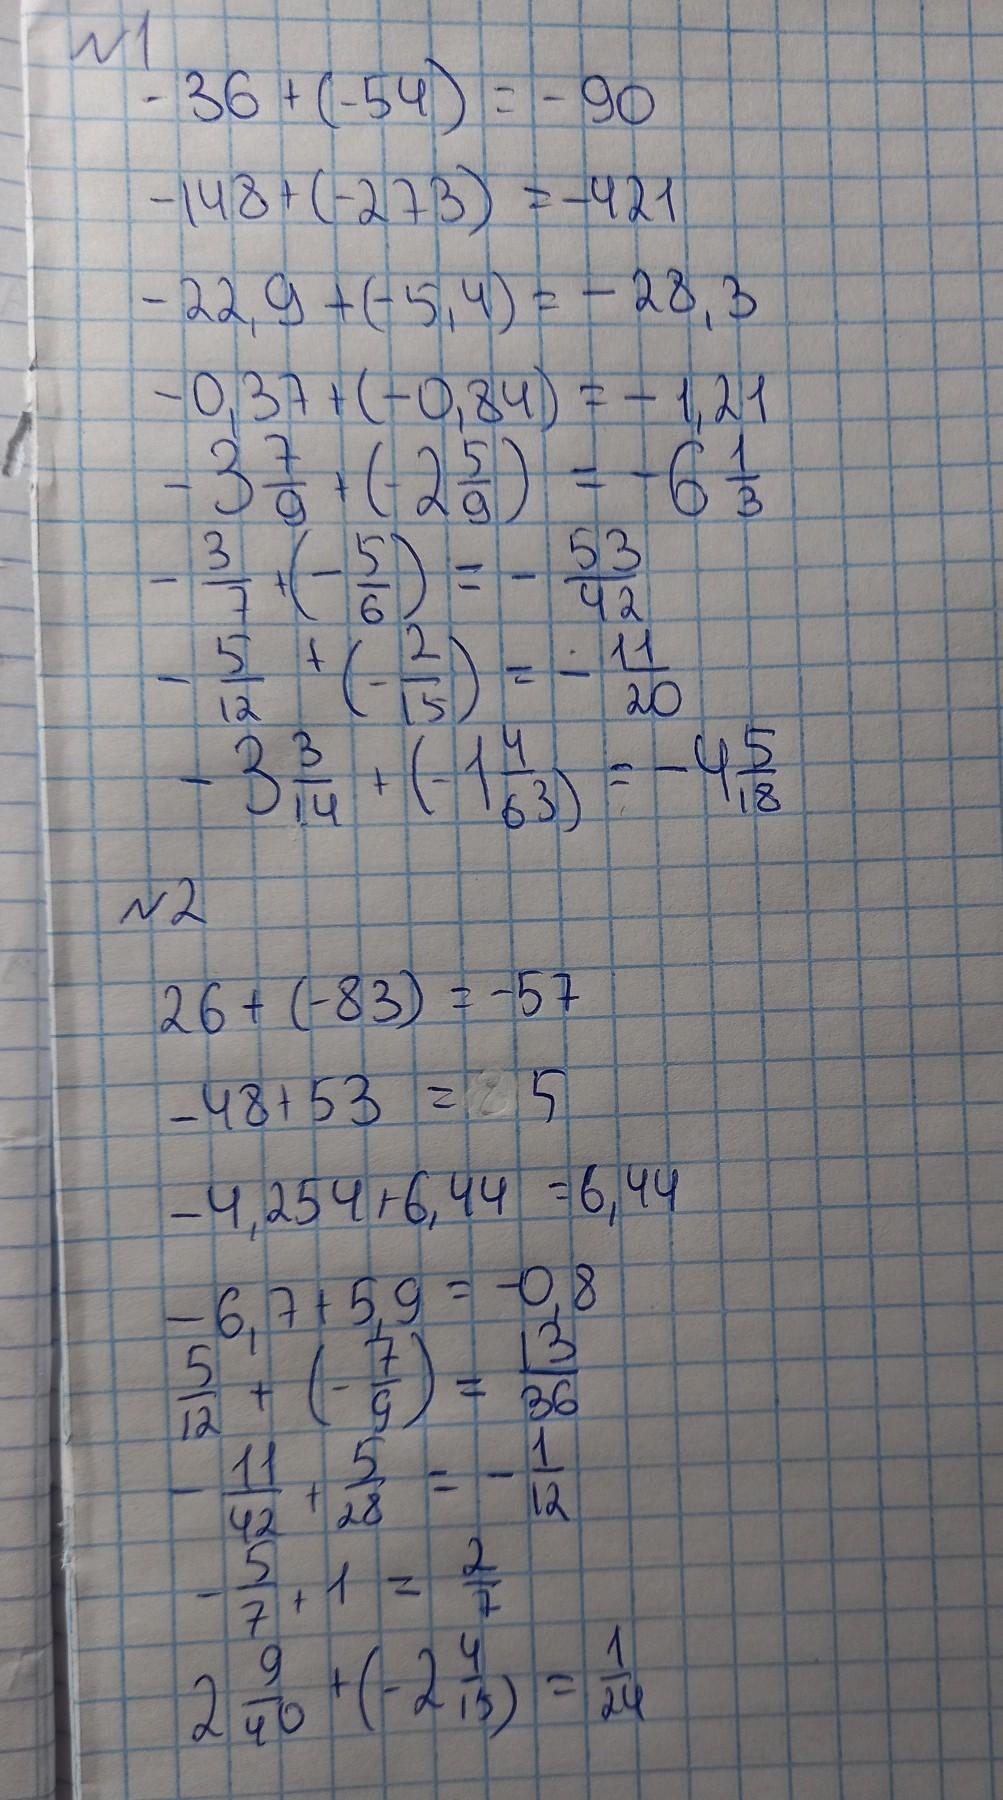 №1
-36+(-54) = -90
-148+(-273) = -421
-22,9+(-5,4) = -28,3
-0,37+(-0,84) = -1,21
-3 7/9 + (-2 5/9) = -6 1/3
-3/7 + (-5/6) = -53/42
-5/12 + (-2/15) = -11/20
-3 3/14 + (-1 4/63) = -4 5/18
№2
26+(-83) = -57
-48+53 = 5
-4,254+6,44 = 6,44
-6,7+5,9 = -0,8
5/12 + (-7/9) = 13/36
-11/42 + 5/28 = -1/12
-5/7 + 1 = 2/7
2 9/40 + (-2 4/15) = 1/24